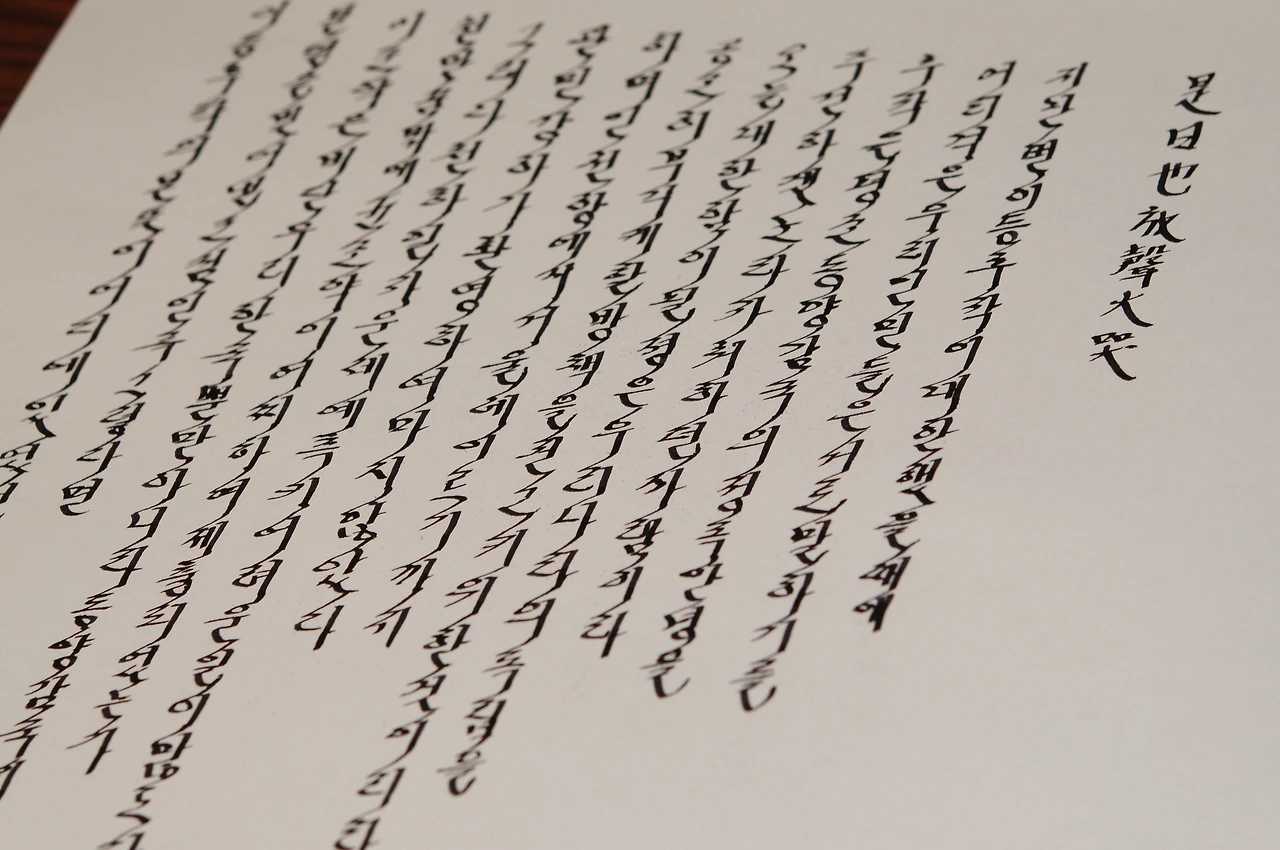 是日也放聲大哭
지난번이등후작이내한했을때에
어리석은우리인민들은서로말하기를
후작은평소동양삼국의정족안녕을
주선하겠노라자처하던사람이라
오늘내한함이필경은우리나라의독립을
공고히부식케할방책을권고키위한것이리라
하여인천항에서서울에이르기까지
관민상하가환영하여마지않았다
그러나천하일가운데예측키어려운일이많도
천만꿈밖에오조약이어찌하여제출되었는가
이조약은비단우리한국뿐만아니라동양삼국이
분열을빚어낼조짐인즉그렇다면
이등후작의본뜻이어디에있었